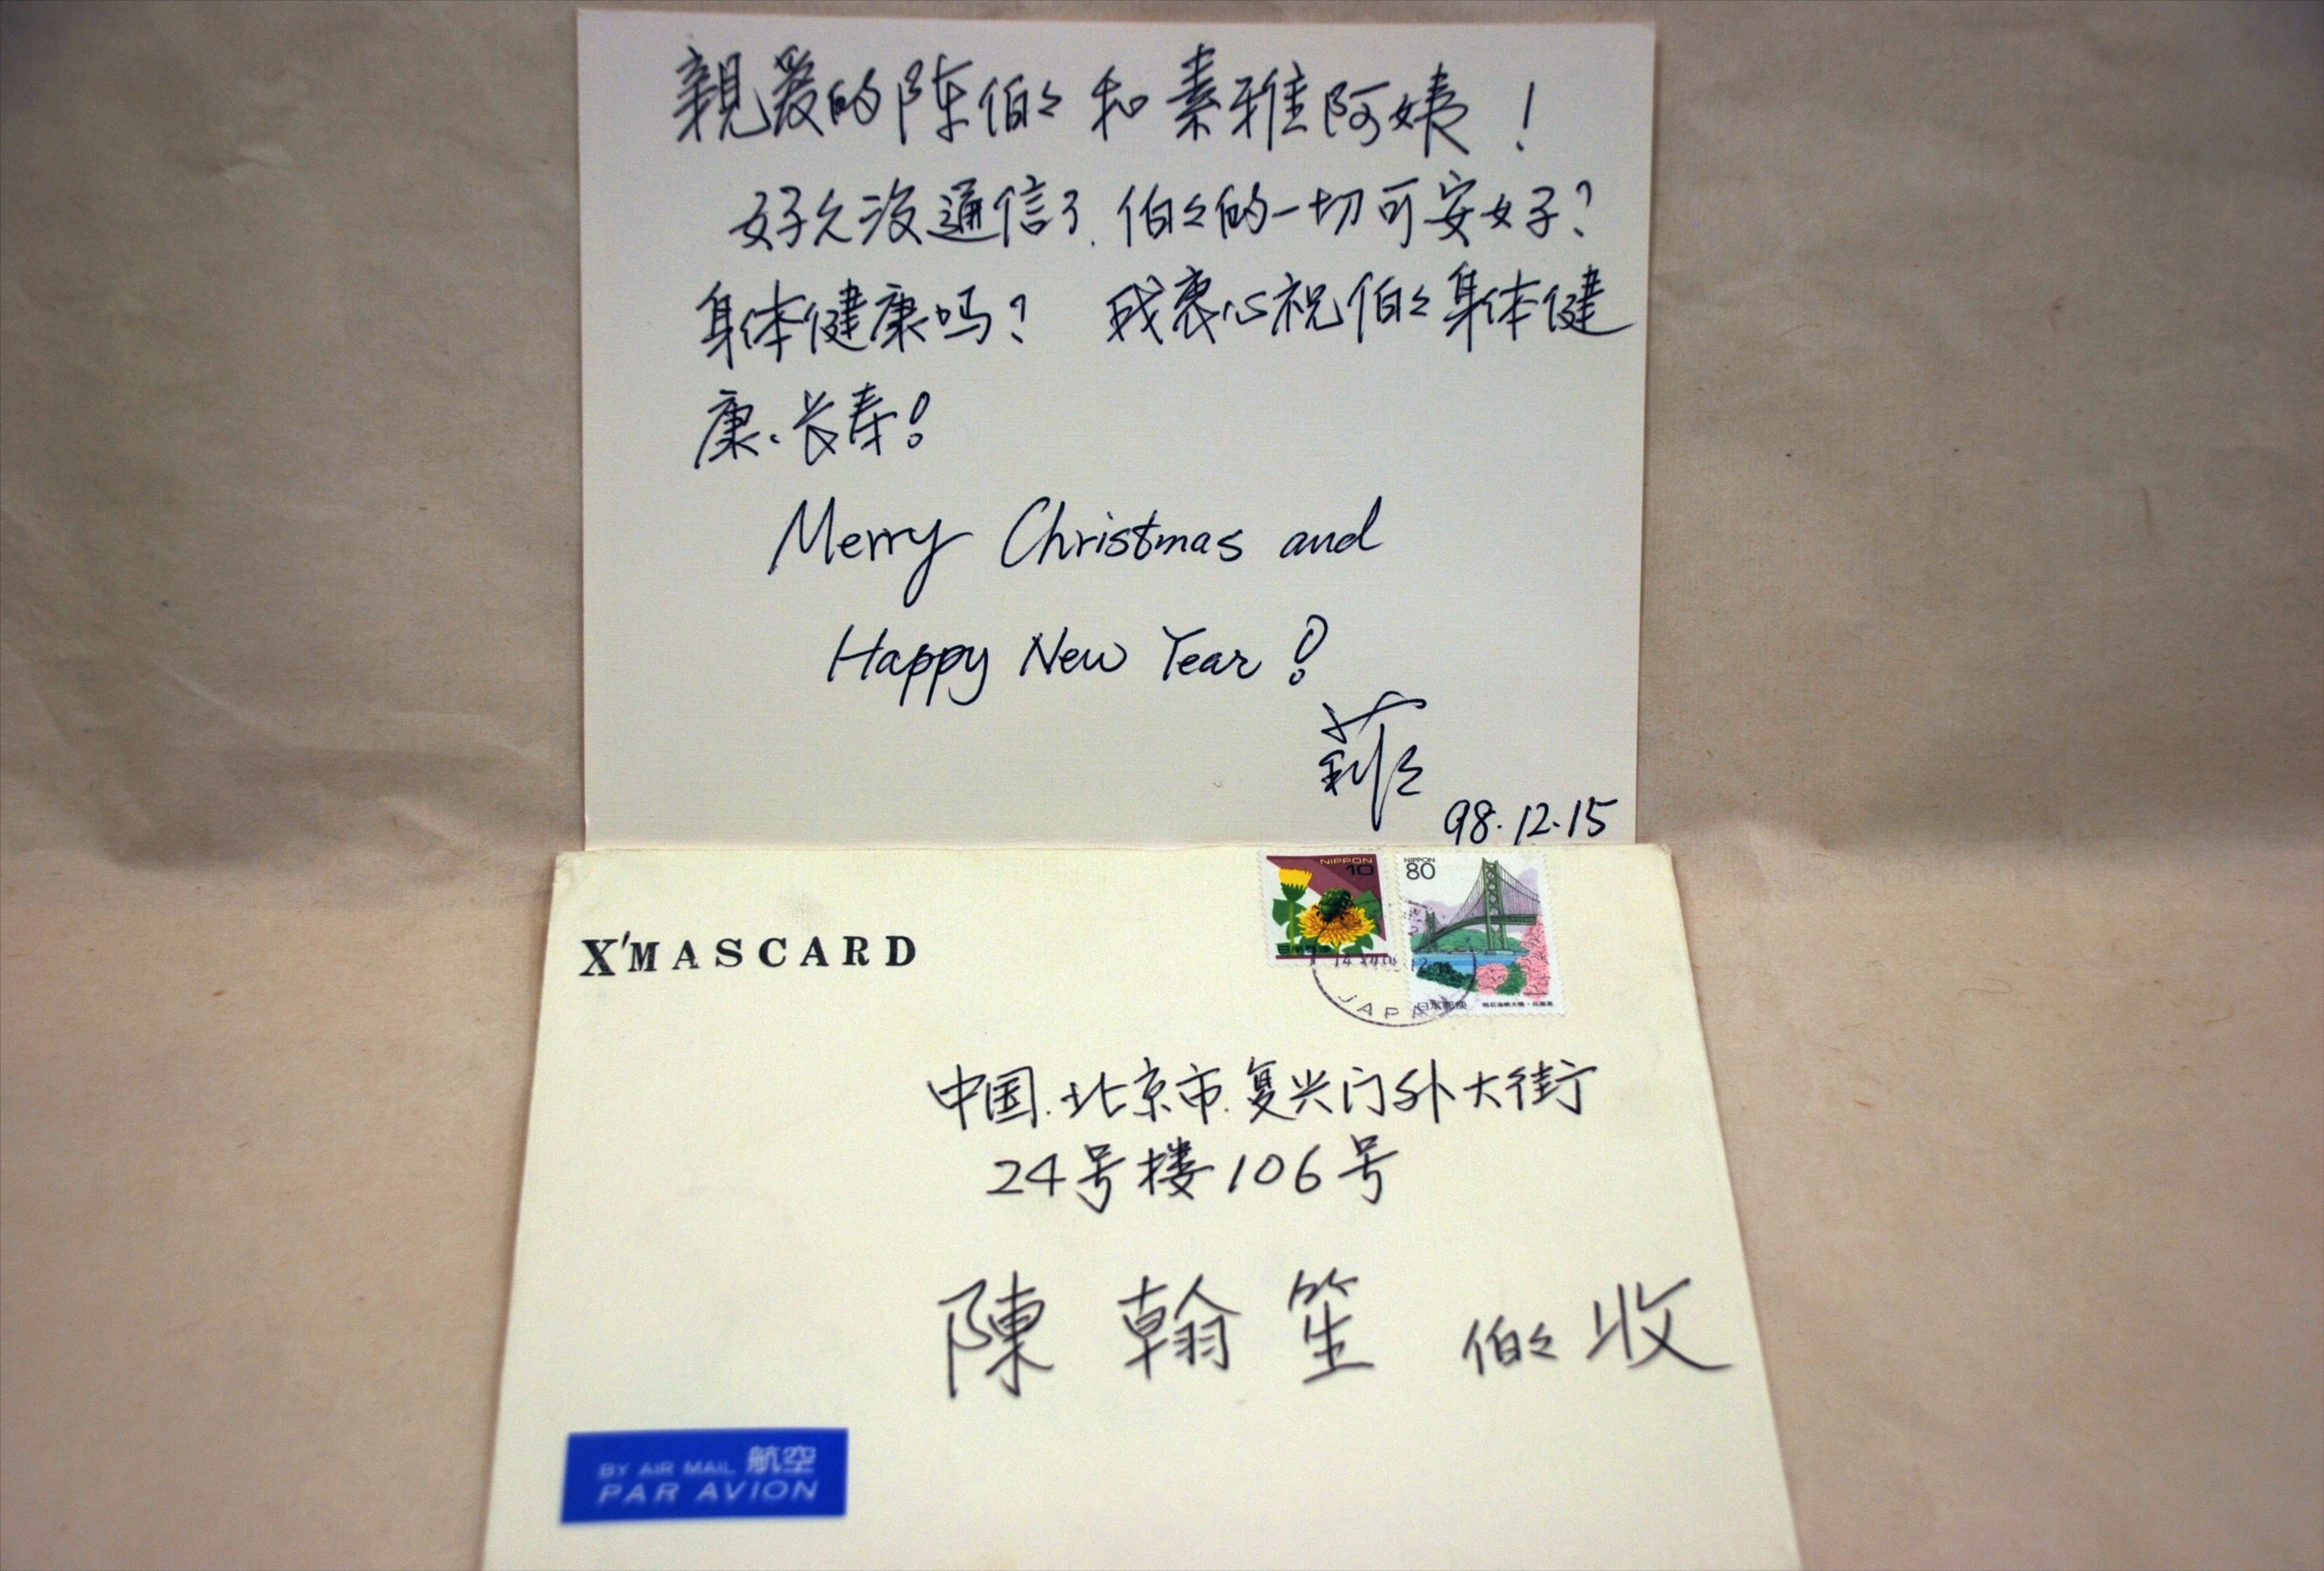 親爱的陈伯々和素雅阿姨！
好久没通信了.伯々的一切可安好？
身体健康吗？ 我衷心祝伯々身体健
康、长寿！
Merry Christmas and
Happy New Year!
莉々
98.12.15
X'MASCARD
NIPPON
10
NIPPON
80
日本郵便
JAPAN
中国.北京市.复兴门外大街
24号楼106号
陳翰笙 伯々收
BY AIR MAIL 航空
PAR AVION